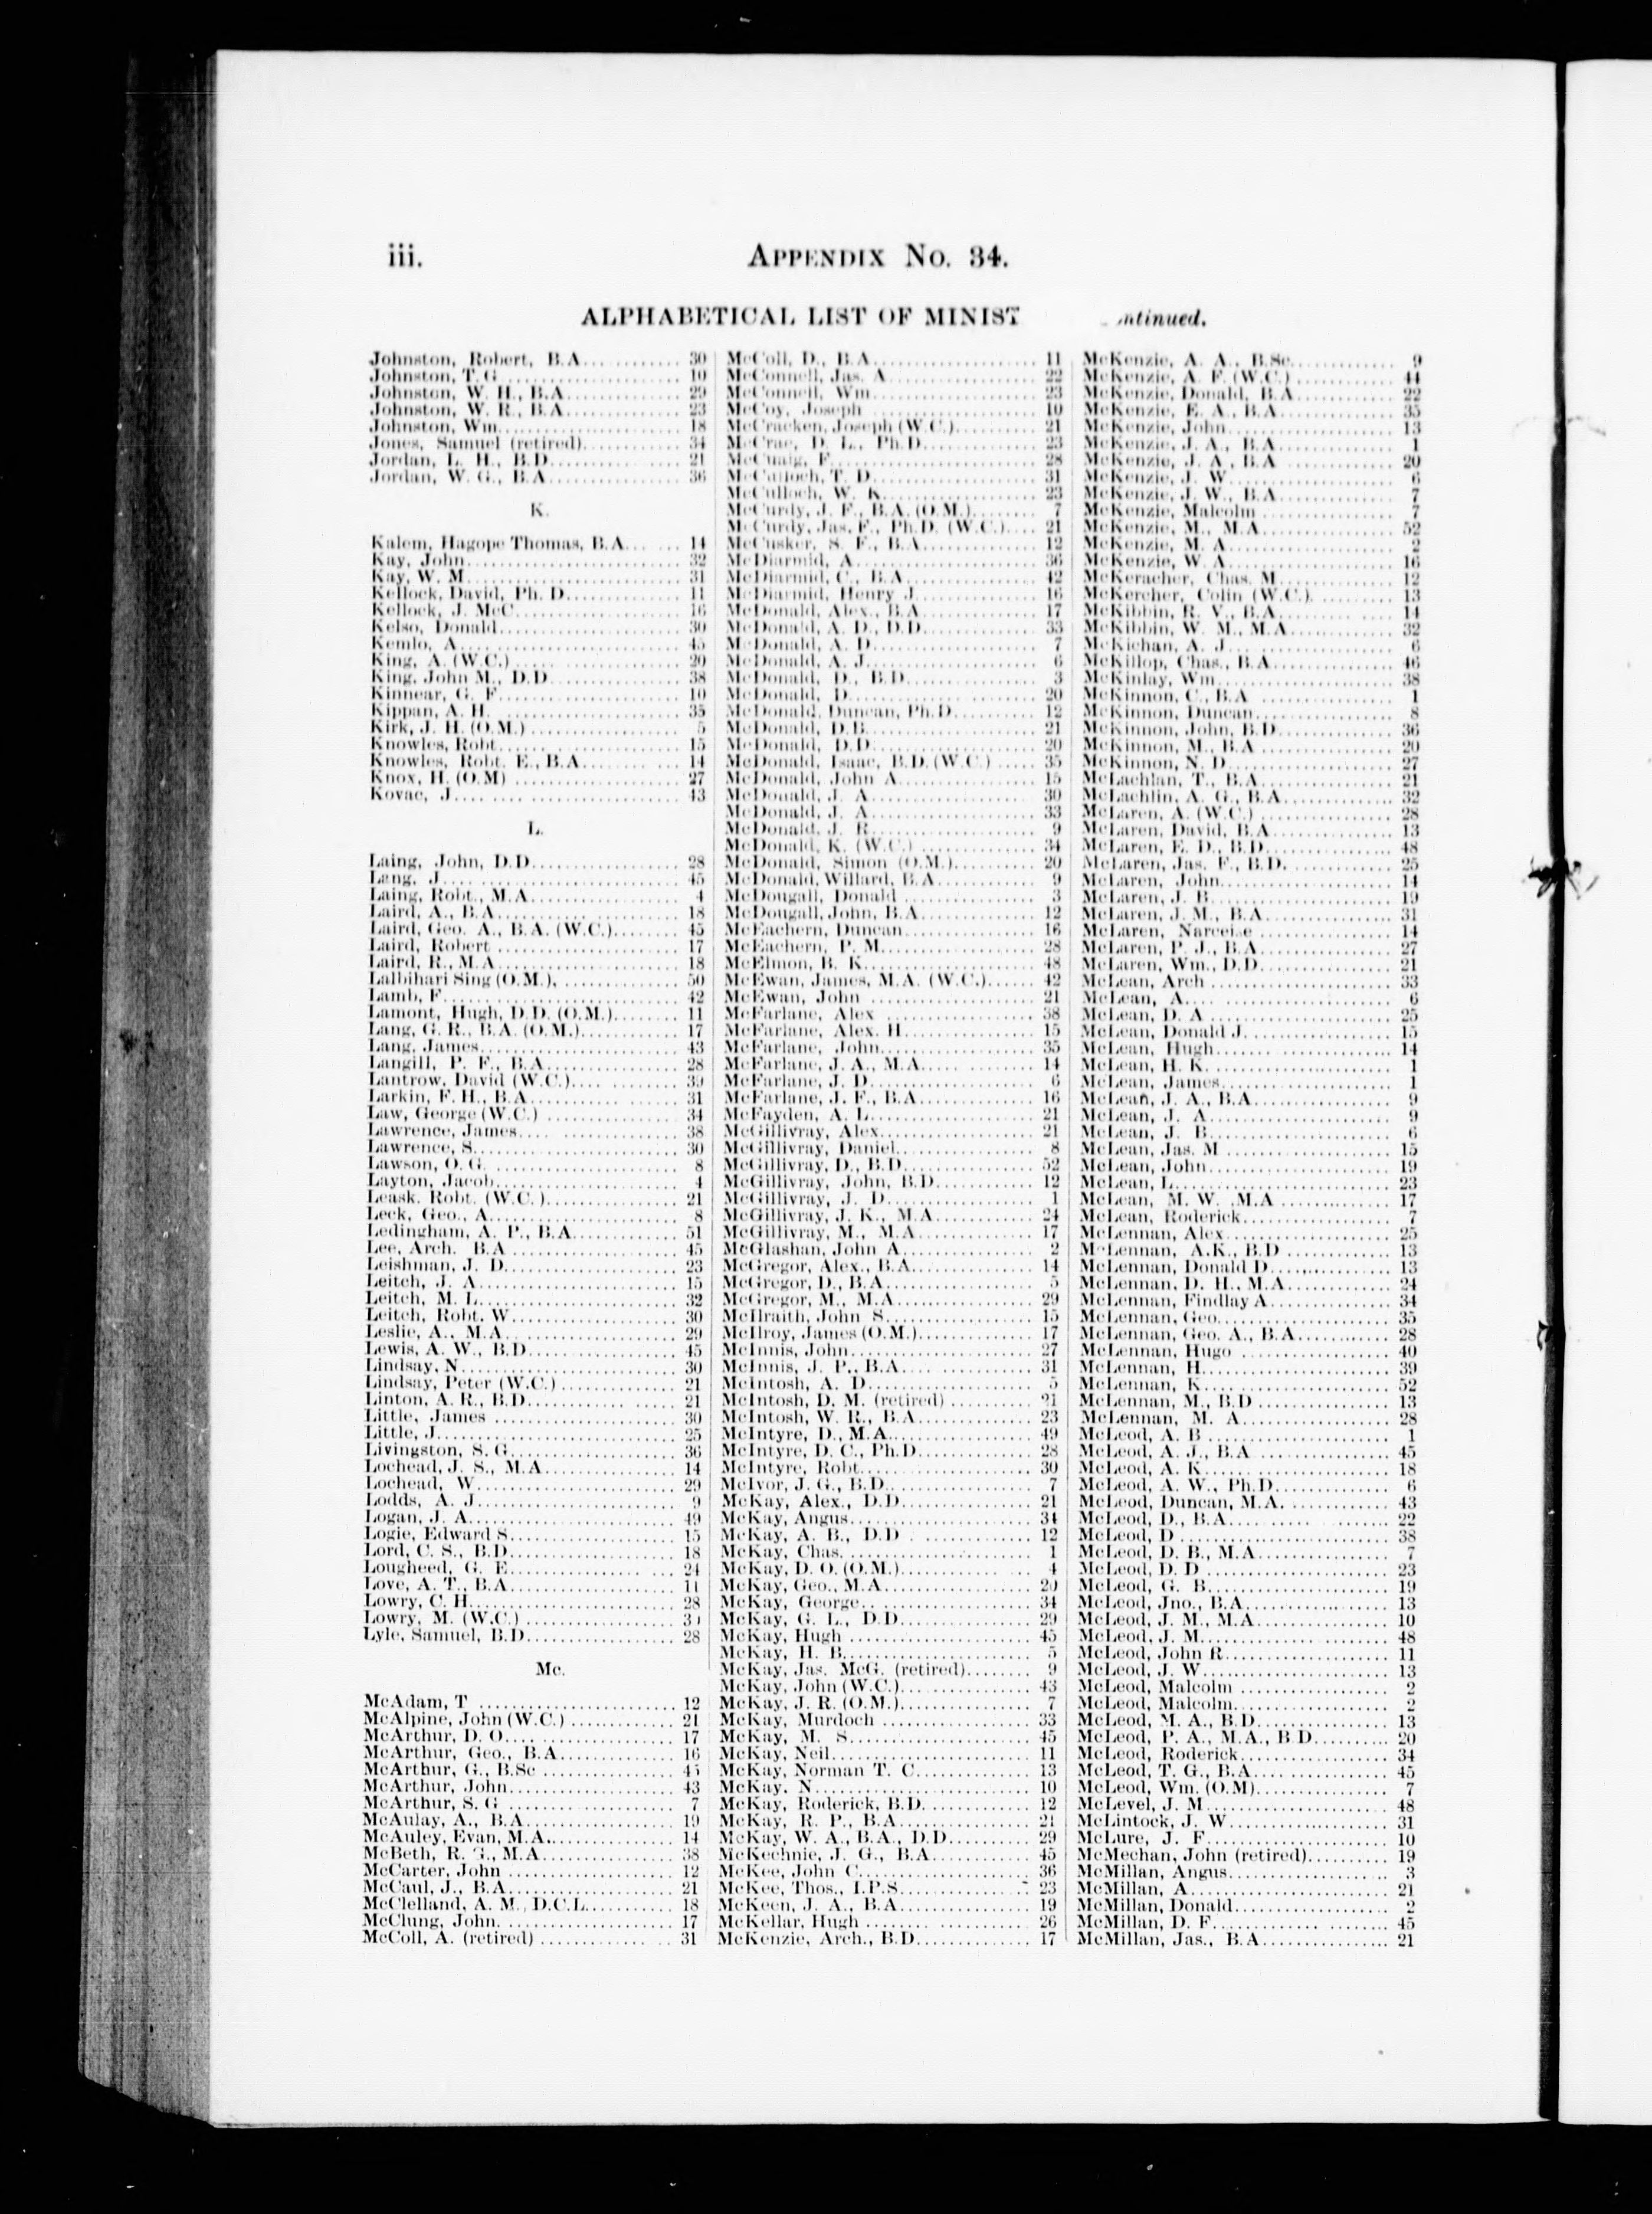 iii.
APPENDIX No. 34.
ALPHABETICAL LIST OF MINIST
ntinued.
Johnston, Robert, B.A. 30
Johnston, T. G. 10
Johnston, W. H., B.A. 29
Johnston, W. R., B.A. 23
Johnston, Wm. 18
Jones, Samuel (retired) 34
Jordan, L. H., B.D. 21
Jordan, W. G., B.A. 36
K.
Kalem, Hagope Thomas, B.A. 14
Kay, John 32
Kay, W. M. 31
Kellock, David, Ph. D. 11
Kellock, J. McC. 16
Kelso, Donald 30
Kemlo, A. 45
King, A. (W.C.) 20
King, John M., D.D. 38
Kinnear, G. F. 10
Kippan, A. H. 35
Kirk, J. H. (O.M.) 5
Knowles, Robt. 15
Knowles, Robt. E., B.A. 14
Knox, H. (O.M) 27
Kovac, J. 43
L.
Laing, John, D.D. 28
Lang, J. 45
Laing, Robt., M.A. 4
Laird, A., B.A. 18
Laird, Geo. A., B.A. (W.C.) 45
Laird, Robert 17
Laird, R., M.A. 18
Lalbihari Sing (O.M.) 50
Lamb, F. 42
Lamont, Hugh, D.D. (O.M.) 11
Lang, G. R., B.A. (O.M.) 17
Lang, James 43
Langill, P. F., B.A. 28
Lantrow, David (W.C.) 39
Larkin, F. H., B.A. 31
Law, George (W.C.) 34
Lawrence, James 38
Lawrence, S. 30
Lawson, O. G. 8
Layton, Jacob 4
Leask, Robt. (W.C.) 21
Leck, Geo., A. 8
Ledingham, A. P., B.A. 51
Lee, Arch. B.A 45
Leishman, J. D. 23
Leitch, J. A. 15
Leitch, M. L. 32
Leitch, Robt. W. 30
Leslie, A., M.A. 29
Lewis, A. W., B.D. 45
Lindsay, N. 30
Lindsay, Peter (W.C.) 21
Linton, A. R., B.D. 21
Little, James 30
Little, J. 25
Livingston, S. G. 36
Lochead, J. S., M.A. 14
Lochead, W. 29
Lodds, A. J. 9
Logan, J. A. 49
Logie, Edward S. 15
Lord, C. S., B.D. 18
Lougheed, G. E. 24
Love, A. T., B.A. 11
Lowry, C. H. 28
Lowry, M. (W.C.)
Lyle, Samuel, B.D. 28
Mc.
McAdam, T 12
McAlpine, John (W.C.) 21
McArthur, D. O. 17
McArthur, Geo., B.A. 16
McArthur, G., B.Sc 45
McArthur, John 43
McArthur, S. G 7
McAulay, A., B.A. 19
McAuley, Evan, M.A. 14
McBeth, R. G., M.A. 38
McCarter, John 12
McCaul, J., B.A. 21
McClelland, A. M., D.C.L. 18
McClung, John 17
McColl, A. (retired) 31
McColl, D., B.A. 11
McConnell, Jas. A. 22
McConnell, Wm 23
McCoy, Joseph 10
McCracken, Joseph (W.C.) 21
McCrae, D. L., Ph.D. 23
McCuaig, F. 28
McCulloch, T. D. 31
McCulloch, W. K. 23
McCurdy, J. F., B.A. (O.M.) 7
McCurdy, Jas. F., Ph.D. (W.C.) 21
McCusker, S. F., B.A. 12
McDiarmid, A. 36
McDiarmid, C., B.A. 42
McDiarmid, Henry J. 16
McDonald, Alex., B.A. 17
McDonald, A. D., D.D. 33
McDonald, A. D. 7
McDonald, A. J. 6
McDonald, D., B.D. 3
McDonald, D. 20
McDonald, Duncan, Ph.D. 12
McDonald, D.B. 21
McDonald, D.D. 20
McDonald, Isaac, B.D. (W.C.) 35
McDonald, John A. 15
McDonald, J. A. 30
McDonald, J. A. 33
McDonald, J. R. 9
McDonald, K. (W.C.) 34
McDonald, Simon (O.M.) 20
McDonald, Willard, B.A. 9
McDougall, Donald 3
McDougall, John, B.A. 12
McEachern, Duncan 16
McEachern, P. M. 28
McElmon, B. K. 48
McEwan, James, M.A. (W.C.) 42
McEwan, John 21
McFarlane, Alex 38
McFarlane, Alex. H. 15
McFarlane, John 35
McFarlane, J. A., M.A. 14
McFarlane, J. D. 6
McFarlane, J. F., B.A. 16
McFayden, A. L. 21
McGillivray, Alex. 21
McGillivray, Daniel 8
McGillivray, D., B.D. 52
McGillivray, John, B.D. 12
McGillivray, J. D. 1
McGillivray, J. K., M.A. 24
McGillivray, M., M.A. 17
McGlashan, John A. 2
McGregor, Alex., B.A. 14
McGregor, D., B.A. 5
McGregor, M., M.A. 29
McIlraith, John S. 15
McIlroy, James (O.M.) 17
McInnis, John 27
McInnis, J. P., B.A. 31
McIntosh, A. D. 5
McIntosh, D. M. (retired) 21
McIntosh, W. R., B.A. 23
McIntyre, D., M.A. 49
McIntyre, D. C., Ph.D. 28
McIntyre, Robt. 30
McIvor, J. G., B.D. 7
McKay, Alex., D.D. 21
McKay, Angus 34
McKay, A. B., D.D 12
McKay, Chas. 1
McKay, D. O. (O.M.) 4
McKay, Geo., M.A. 20
McKay, George 34
McKay, G. L., D.D. 29
McKay, Hugh 45
McKay, H. B. 5
McKay, Jas. McG. (retired) 9
McKay, John (W.C.) 43
McKay, J. R. (O.M.) 7
McKay, Murdoch 33
McKay, M. S. 45
McKay, Neil 11
McKay, Norman T. C. 13
McKay, N. 10
McKay, Roderick, B.D. 12
McKay, R. P., B.A. 21
McKay, W. A., B.A., D.D. 29
McKechnie, J. G., B.A. 45
McKee, John C. 36
McKee, Thos., I.P.S. 23
McKeen, J. A., B.A. 19
McKellar, Hugh 26
McKenzie, Arch., B.D. 17
McKenzie, A. A., B.Sc. 9
McKenzie, A. F. (W.C.) 44
McKenzie, Donald, B.A. 22
McKenzie, E. A., B.A. 35
McKenzie, John 13
McKenzie, J. A., B.A. 1
McKenzie, J. A., B.A 20
McKenzie, J. W. 6
McKenzie, J. W., B.A. 7
McKenzie, Malcolm 7
McKenzie, M., M.A. 52
McKenzie, M. A. 2
McKenzie, W. A. 16
McKeracher, Chas. M. 12
McKercher, Colin (W.C.) 13
McKibbin, R. V., B.A. 14
McKibbin, W. M., M.A. 32
McKichan, A. J. 6
McKillop, Chas., B.A. 46
McKinlay, Wm. 38
McKinnon, C., B.A 1
McKinnon, Duncan 8
McKinnon, John, B.D. 36
McKinnon, M., B.A 20
McKinnon, N. D. 27
McLachlan, T., B.A. 21
McLachlin, A. G., B.A. 32
McLaren, A. (W.C.) 28
McLaren, David, B.A. 13
McLaren, E. D., B.D. 48
McLaren, Jas. F., B.D. 25
McLaren, John 14
McLaren, J. B. 19
McLaren, J. M., B.A. 31
McLaren, 14
McLaren, P. J., B.A. 27
McLaren, Wm., D.D. 21
McLean, Arch 33
McLean, A. 6
McLean, D. A 25
McLean, Donald J. 15
McLean, Hugh 14
McLean, H. K. 1
McLean, James 1
McLean, J. A., B.A. 9
McLean, J. A. 9
McLean, J. B. 6
McLean, Jas. M 15
McLean, John 19
McLean, L. 23
McLean, M. W. ,M.A 17
McLean, Roderick 7
McLennan, Alex. 25
McLennan, A.K., B.D 13
McLennan, Donald D. 13
McLennan, D. H., M.A. 24
McLennan, Findlay A. 34
McLennan, Geo. 35
McLennan, Geo. A., B.A. 28
McLennan, Hugo 40
McLennan, H. 39
McLennan, K. 52
McLennan, M., B.D 13
McLennan, M. A. 28
McLeod, A. B 1
McLeod, A. J., B.A 45
McLeod, A. K. 18
McLeod, A. W., Ph.D. 6
McLeod, Duncan, M.A. 43
McLeod, D., B.A. 22
McLeod, D 38
McLeod, D. B., M.A. 7
McLeod, D. D 23
McLeod, G. B. 19
McLeod, Jno., B.A. 13
McLeod, J. M., M.A. 10
McLeod, J. M. 48
McLeod, John R. 11
McLeod, J. W. 13
McLeod, Malcolm 2
McLeod, Malcolm 2
McLeod, M. A., B.D. 13
McLeod, P. A., M.A., B.D. 20
McLeod, Roderick 34
McLeod, T. G., B.A. 45
McLeod, Wm. (O.M) 7
McLevel, J. M. 48
McLintock, J. W. 31
McLure, J. F. 10
McMechan, John (retired) 19
McMillan, Angus 3
McMillan, A. 21
McMillan, Donald 2
McMillan, D. F. 45
McMillan, Jas., B.A. 21